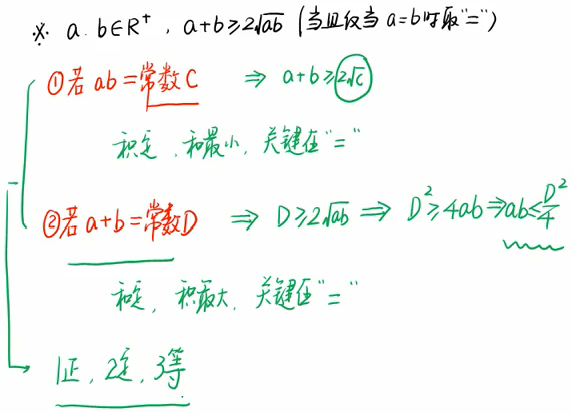 ※ a.b∈R⁺, a+b≥2√ab (当且仅当a=b时取"=")
①若 ab=常数C ⇒ a+b≥2√C
积定,和最小,关键在"="
②若 a+b=常数D ⇒ D≥2√ab ⇒ D²≥4ab⇒ab≤D²/4
和定,积最大,关键在"="
1正,2定,3等